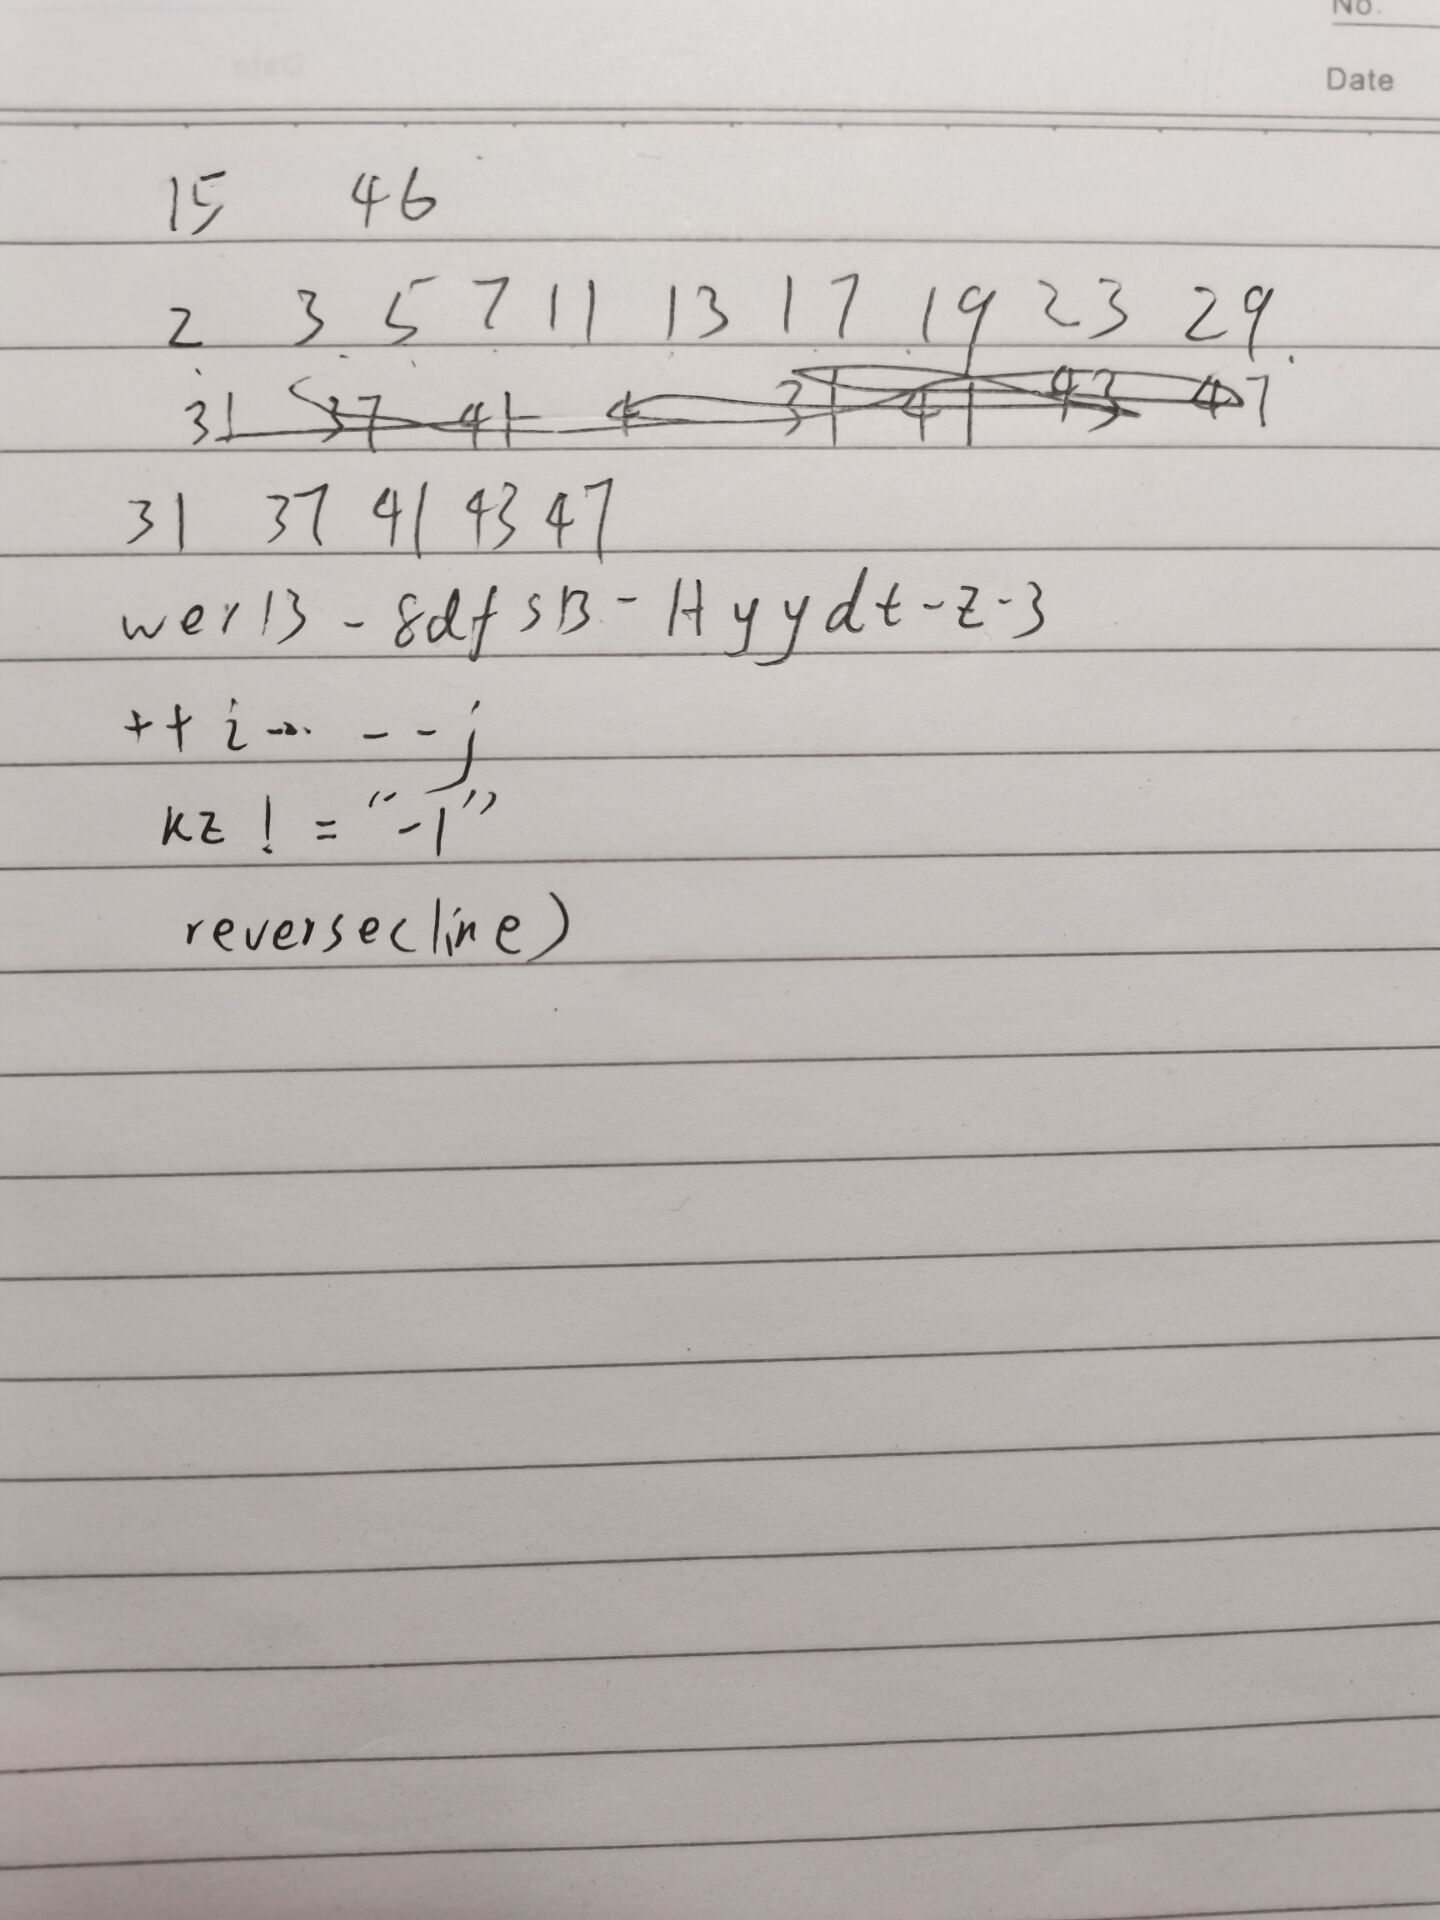 No.
Date
15 46
2 3 5 7 11 13 17 19 23 29
31 37 41 4 31 41 43 47
31 37 41 43 47
wer13-8dfsB-Hyydt-z-3
++i... --j
kz != "-1"
reverse(line)